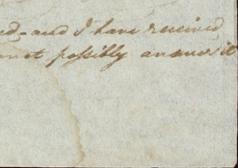 ed - and I have received
not possibly answer it